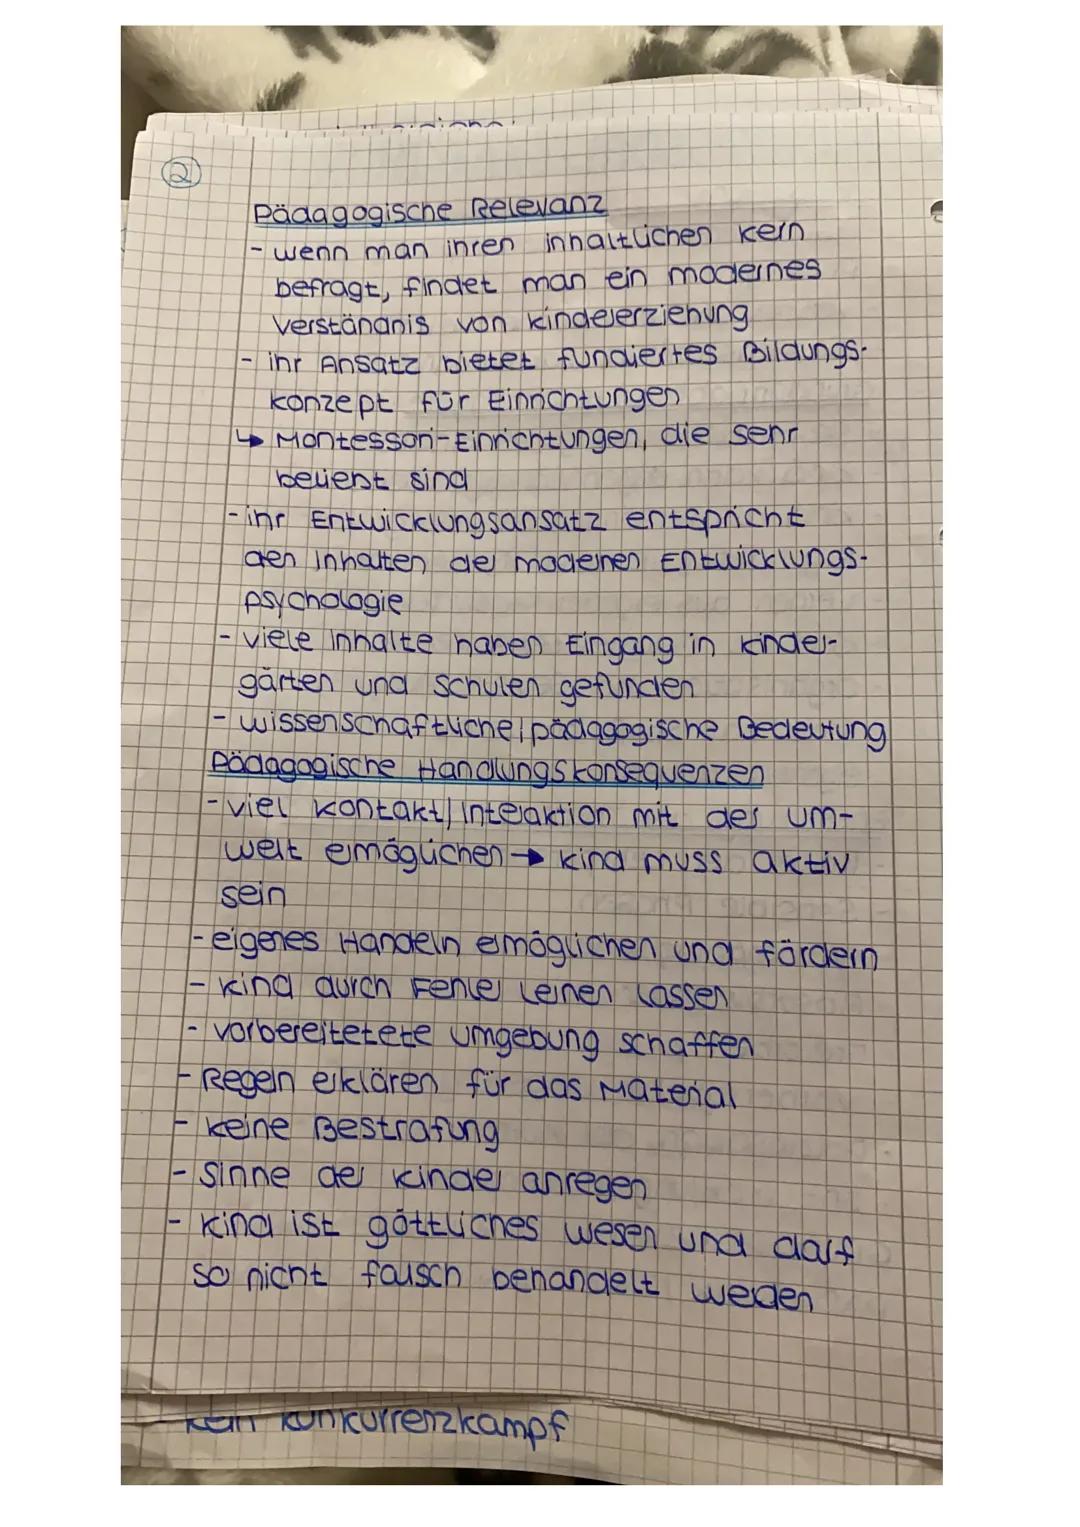 ②
Pädagogische Relevanz
- wenn man ihren inhaltlichen Kern
befragt, findet man ein modernes
Verständnis von Kindererziehung
- ihr Ansatz bietet fundiertes Bildungs-
konzept für Einrichtungen
↳ Montessori-Einrichtungen, die sehr
beliebt sind
- ihr Entwicklungsansatz entspricht
den Inhalten der modernen Entwicklungs-
psychologie
- viele Inhalte haben Eingang in Kinder-
gärten und Schulen gefunden
- wissenschaftliche/pädagogische Bedeutung
Pädagogische Handlungskonsequenzen
- viel Kontakt/Interaktion mit der Um-
welt ermöglichen → Kind muss aktiv
sein
- eigenes Handeln ermöglichen und fördern
- Kind durch Fehler lernen lassen
- vorbereitetete Umgebung schaffen
- Regeln erklären für das Material
- keine Bestrafung
- Sinne der Kinder anregen
- Kind ist göttliches Wesen und darf
so nicht falsch behandelt werden
kein Konkurrenzkampf